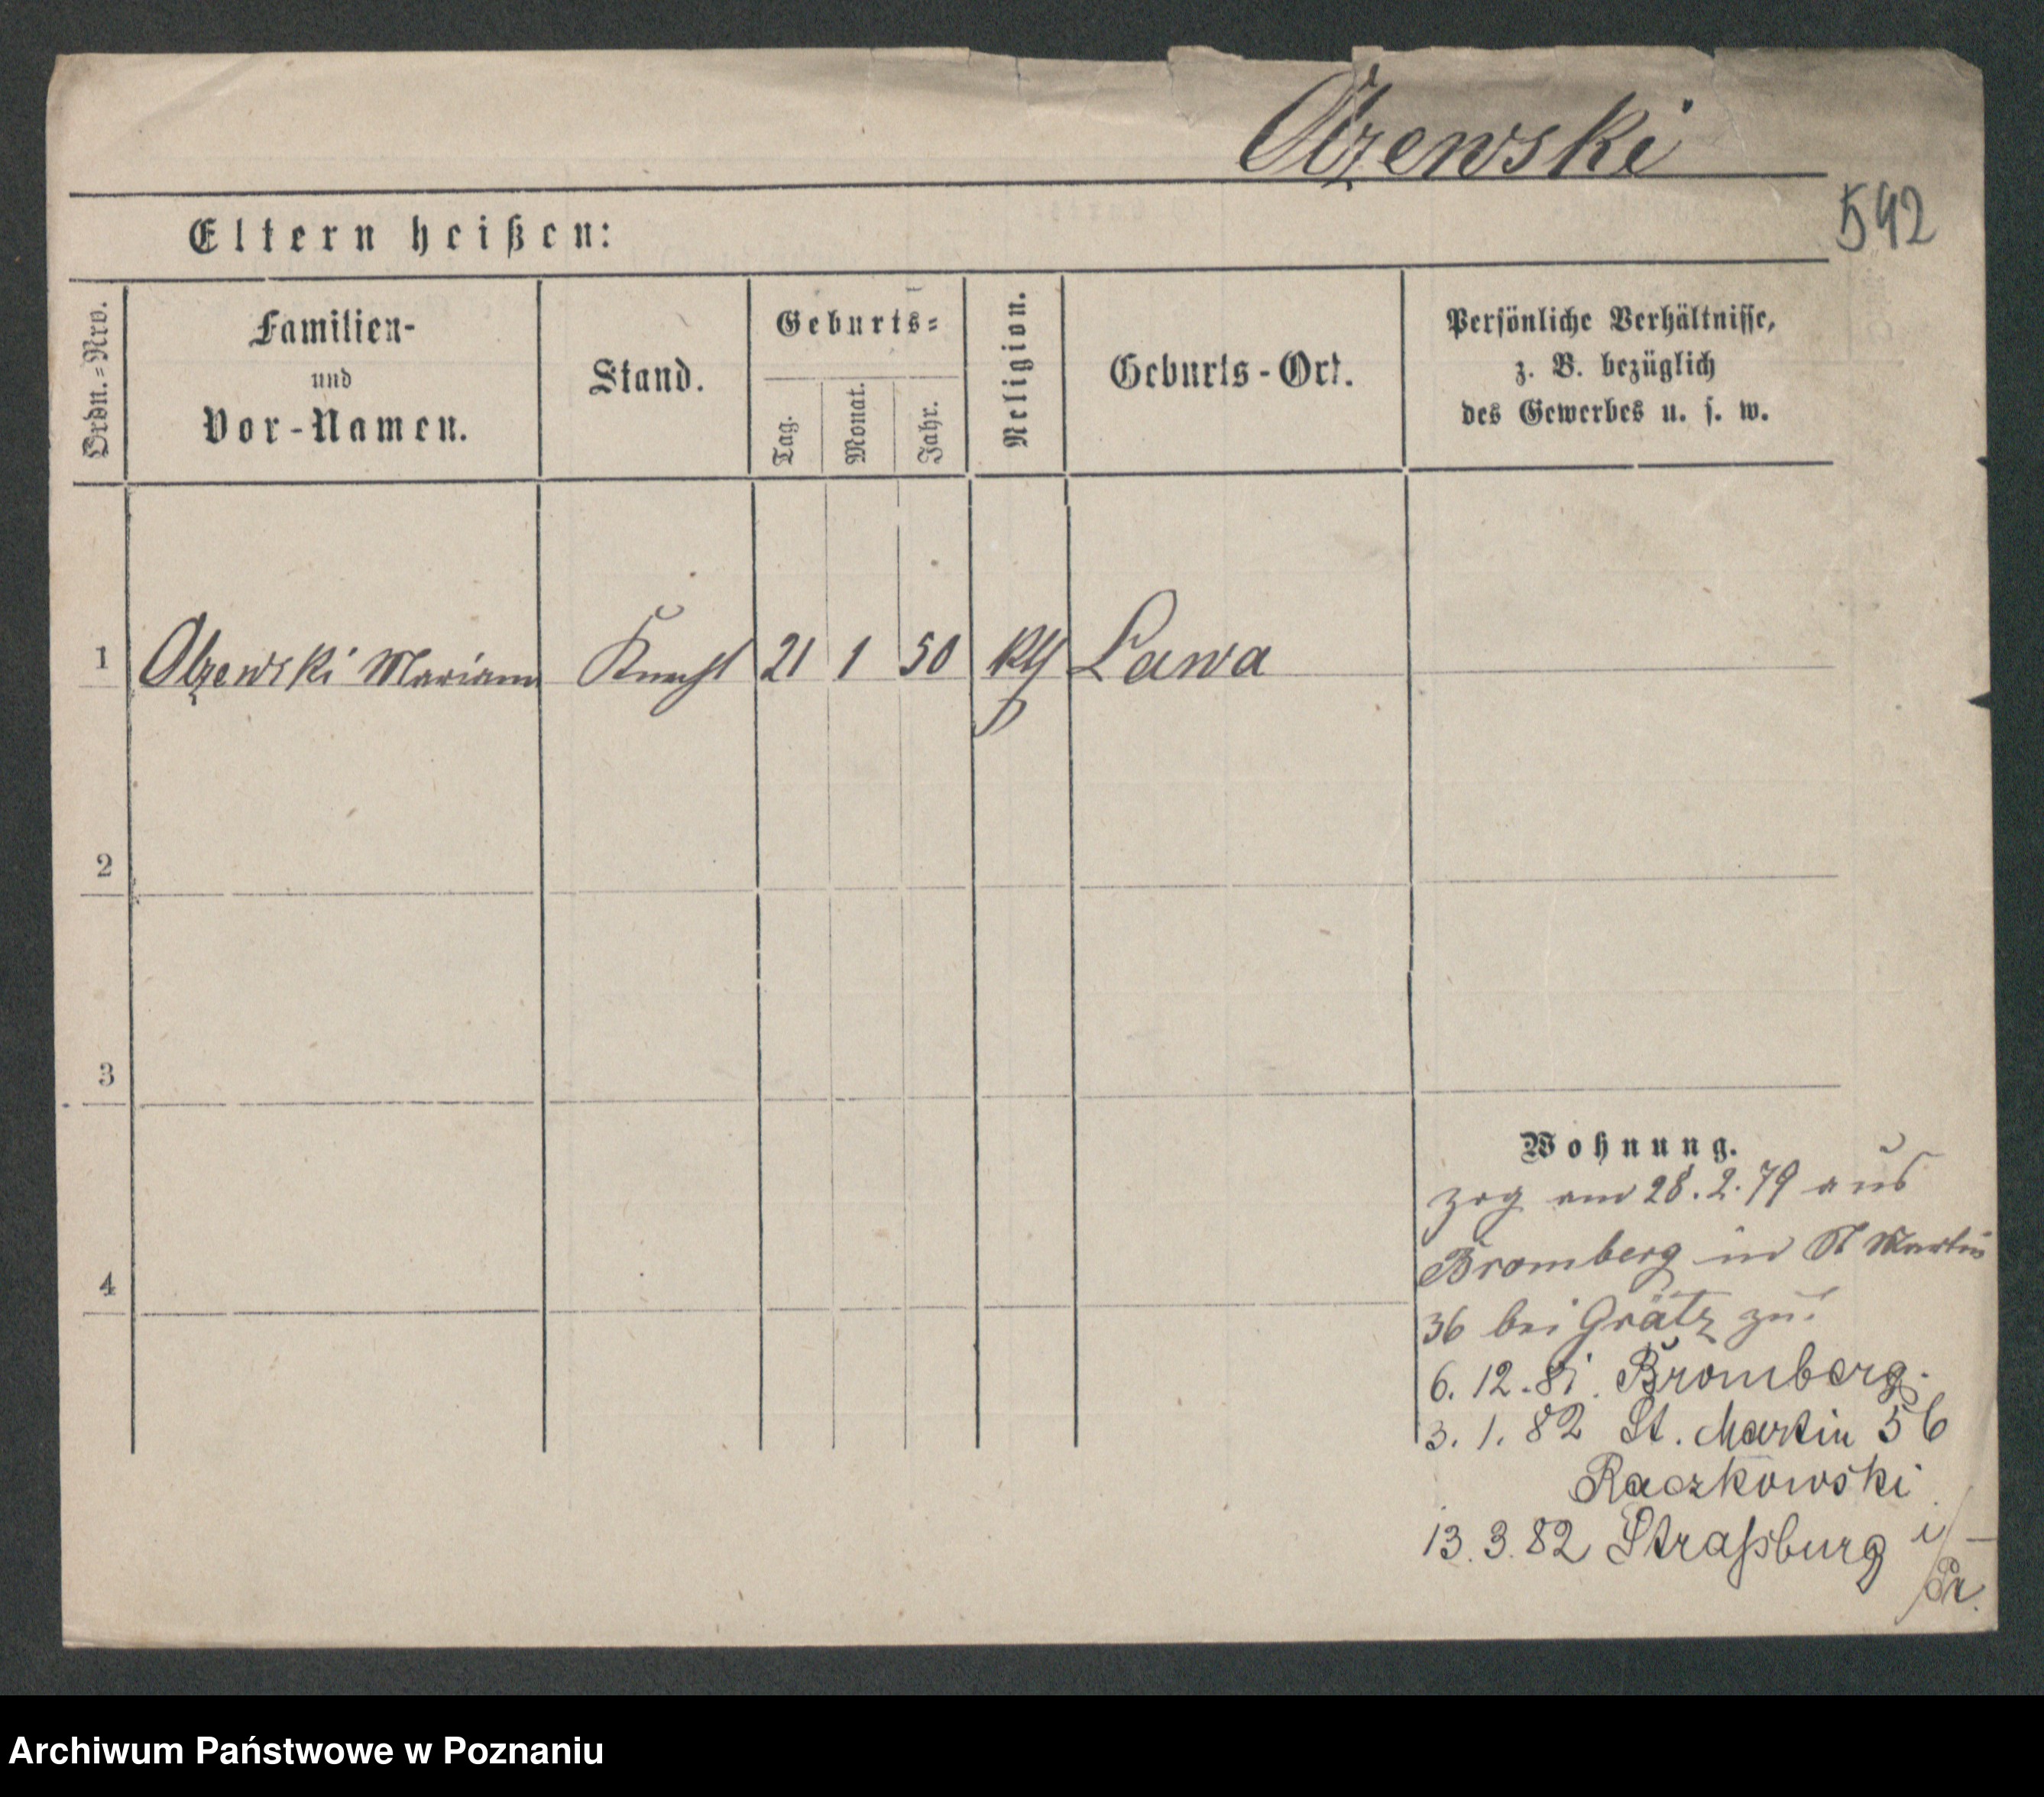 Olzewski
542
Eltern heißen:
Ordn.=Nro.
Familien-
und
Vor-Namen.
Stand.
Geburts=
Tag.
Monat.
Jahr.
Religion.
Geburts-Ort.
Persönliche Verhältnisse,
z. B. bezüglich
des Gewerbes u. s. w.
1 Olzewski Mariann Knecht 21 1 50 Lawa
2
3
4
Wohnung.
zog am 28.2.79 aus
Bromberg in St Martin
36 bei Grätz zu!
6. 12. 81. Bromberg.
3. 1. 82 St. Martin 56
Raczkowski
13. 3. 82 Straßburg i/
Pr.
Archiwum Państwowe w Poznaniu